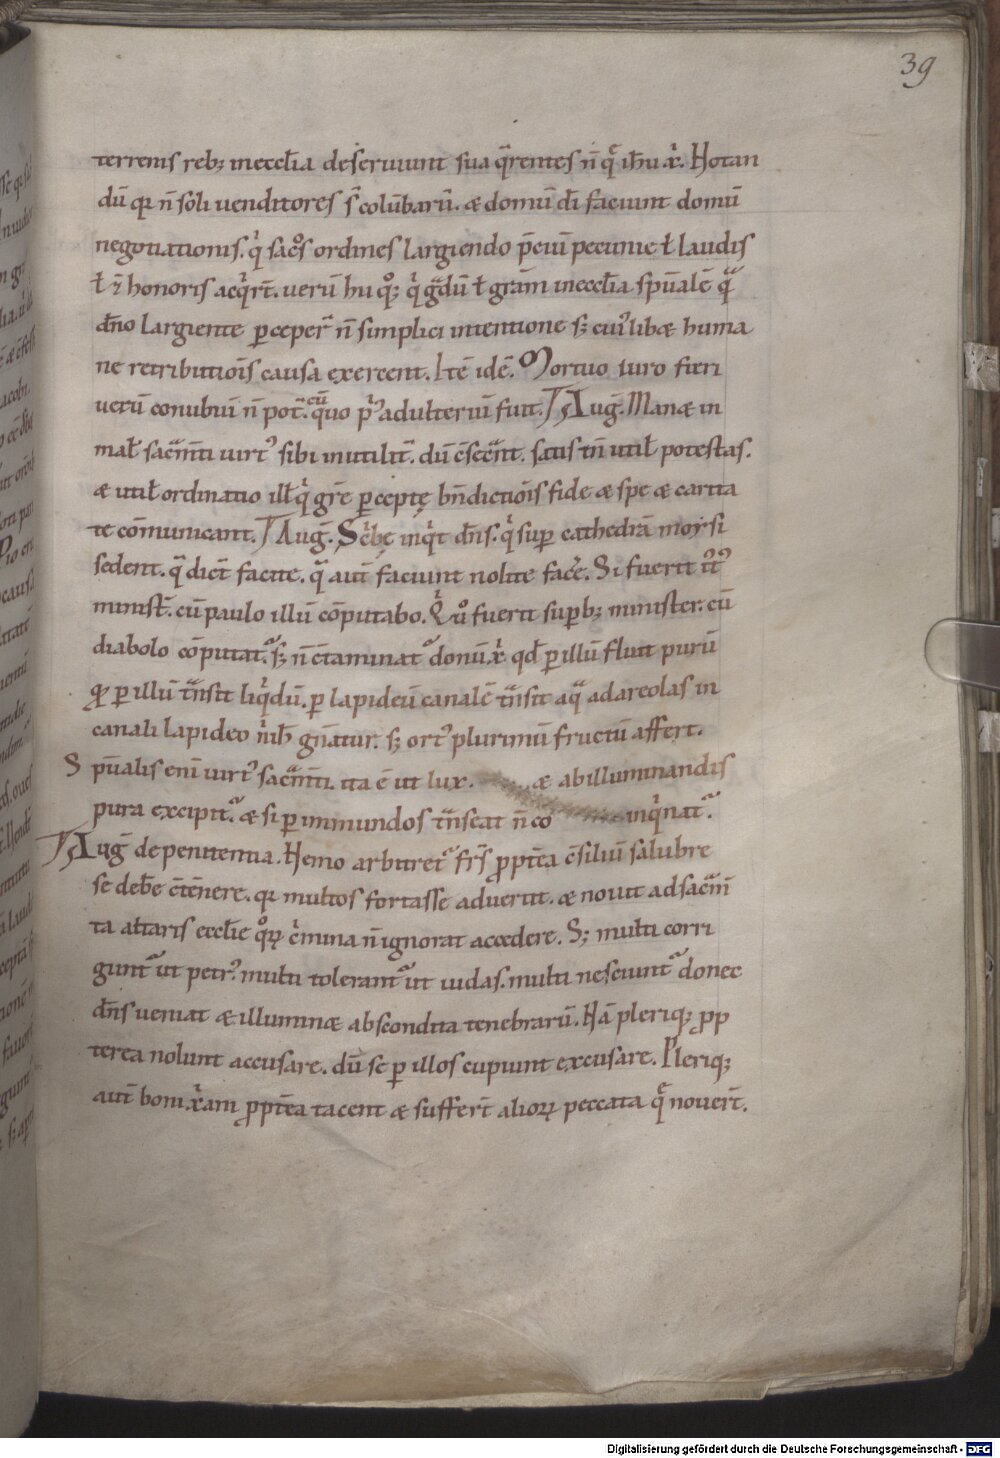 39
terrenis reb; inęccl̄ia deserviunt sua q̄rentes n̄ q̄ ih̄u x̄. Notan
dū qͥ n̄ soli venditores s̄ colūbarū. & domū dī faciunt domū
negotiationis. qͥ sac̊s ordines largiendo p̄ciū pecunie ł laudis
ł honoris acqͥrt̄. verū hi qͦ; qͥ gͣdū ł gr̄am inęccl̄ia sp̄ualē qͣ
dn̄o largiente p̄ceper̄ n̄ simplici intentione s; cuiꝰlib& huma
ne retributiōis causa exercent. Itē idē. Mortuo viro fieri
verū conubiū n̄ pot̄. cū quo pͥꝰ adulteriū fuit. Auḡ. Man& in
mał sacͣm̄ti virtꝰ sibi inutilit̄. dū c̄sc̄ent. satis tn̄ utił potestas.
& utił ordinatio ill̄ qͥ gr̄e p̄ceptę bn̄dictiōis fide & spe & carita
te cōmunicant. Auḡ. Scͥbę inqͥt dn̄s. qͥ sup̄ cathedrā moysi
sedent. qͣ dict̄ facite. qͣ aut̄ faciunt nolite fac̄e. Si fuerit
minist̄. cū paulo illū cōputabo. Qͥ v̊ fuerit sup̄b; minister. cū
diabolo cōputat᷑. s; n̄ c̄taminat᷑ donū x̄ī qd̄ p̄ illū fluit purū
qͥ p̄ illū tͣnsit liqͥdū. p̄ lapideū canalē tͣnsit aqͣ adareolas in
canali lapideo nͥh̄ gn̄atur. s; ortꝰ plurimū fructū affert.
Sp̄ualis enī virtꝰ sacͣm̄ti. ita ē ut lux. & abilluminandis
pura excipit᷑. & si p̄ immundos tͣnseat n̄ co inqͥnat᷑.
Auḡ depenitentia. Nemo arbitret᷑ fr̄s ꝓpt̄ea c̄siliū salubre
se deb̄e c̄tēnere. qͥ multos fortasse advertit. & novit adsacͣm̄
ta altaris eccl̄ie qͦꝝ cͥmina n̄ignorat accedere. S; multi corri
gunt᷑ ut petrꝰ. multi tolerant᷑ ut iudas. multi nesciunt᷑ donec
dn̄s veniat & illumin& abscondita tenebrarū. Nā pleriq; ꝓp
terea nolunt accusare. dū se p̄ illos cupiunt excusare. Pleriq;
aut̄ boni x̄iani ꝓpt̄ea tacent & suffert̄ alioꝝ peccata q̄ novert̄.
Digitalisierung gefördert durch die Deutsche Forschungsgemeinschaft - DFG